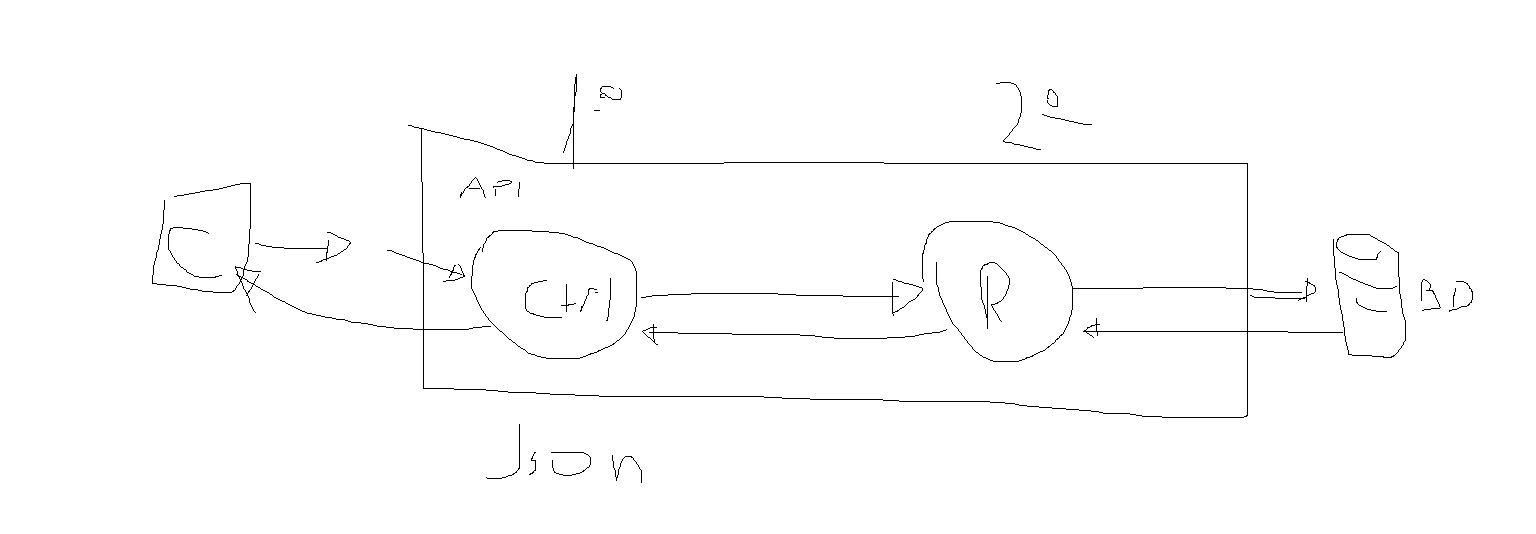 1º
2º
API
C
Ctrl
R
BD
Json